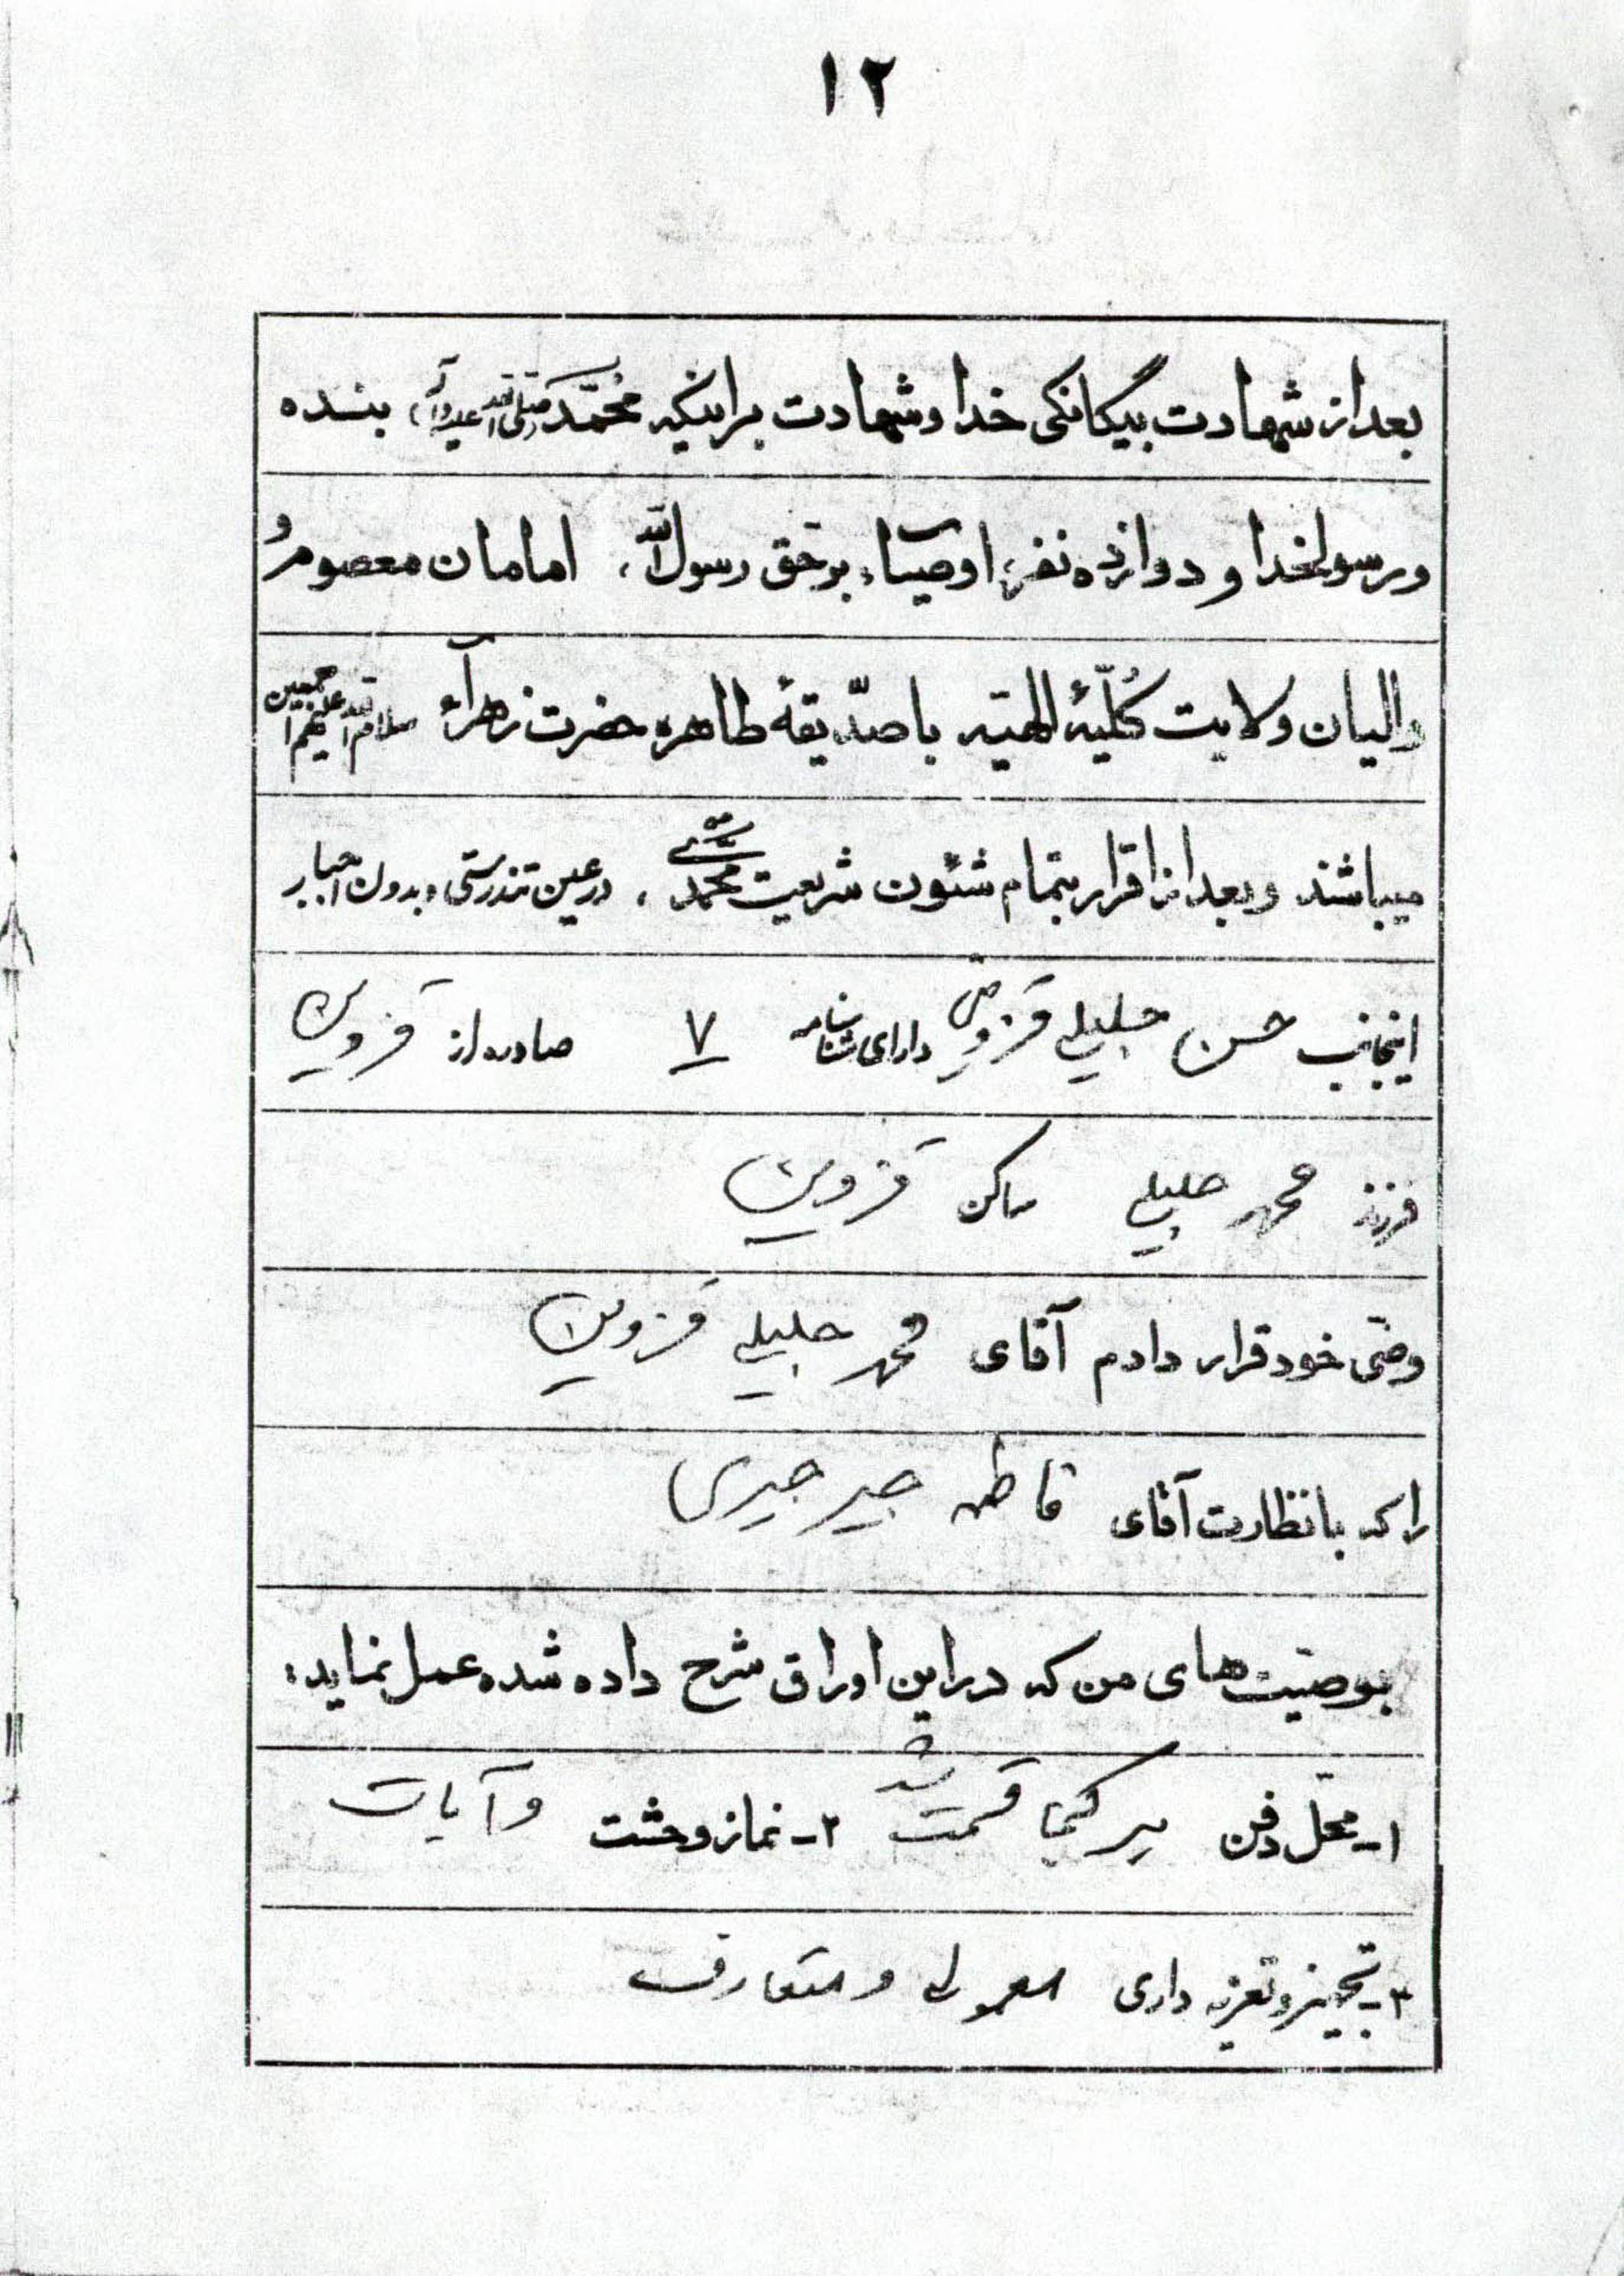 ۱۲
بعد از شهادت بیگانگی خدا و شهادت بر اینکه محمّد (صلی الله علیه و آله) بنده
و رسولخدا و دوازده نفر، اوصیاء برحق رسول اللّه، امامان معصوم و
والیان ولایت کُلّیّهٔ الهیّه با صدّیقهٔ طاهره حضرت زهراء سلام الله علیهم اجمعین
میباشند و بعد از اقرار بتمام شئون شریعت محمّدی، در عین تندرستی و بدون اجبار
اینجانب حسن جلیلی قزوینی دارای شناسنامه ۷ صادره از قزوین
فرزند محمد جلیلی ساکن قزوین
وصّی خود قرار دادم آقای محمد جلیلی قزوینی
را که با نظارت آقای فاطمه
بوصیّت‌های من که در این اوراق شرح داده شده عمل نماید:
۱- محل دفن هر کجا قسمت شد ۲- نماز وحشت و آیات
۳- تجهیز و تعزیه داری معمولی و متعارف